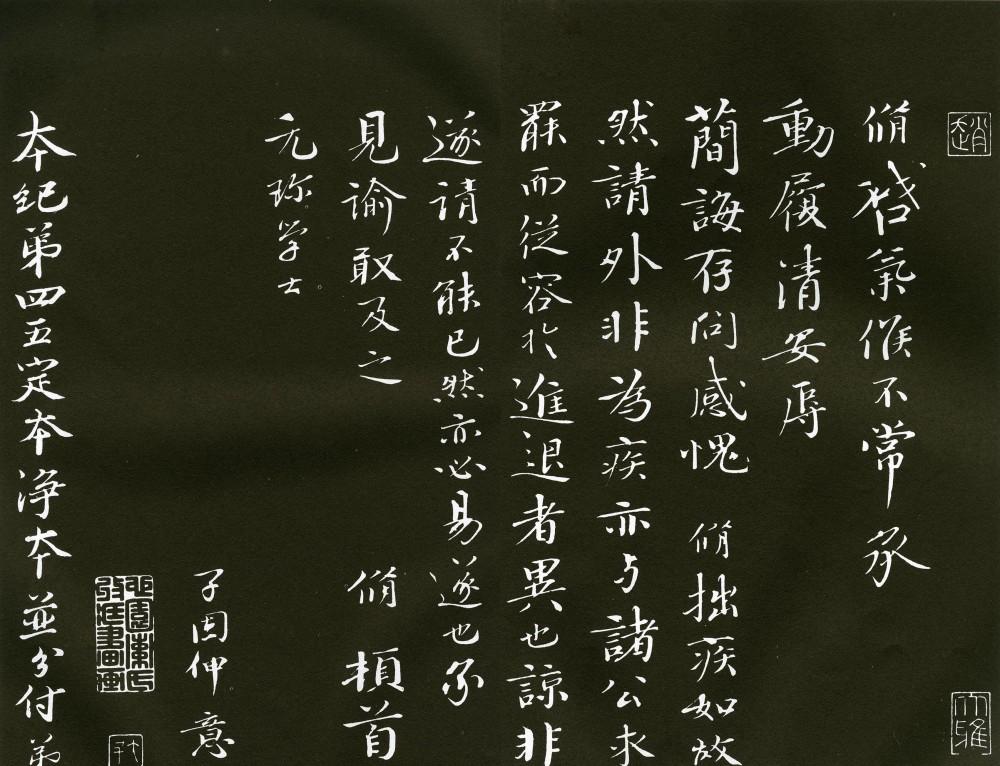 趙
大雅
脩啓氣候不常承
動履清安辱
簡誨存問感愧 脩拙疾如故
然請外非為疾亦与諸公求
罷而從容於進退者異也諒非
遂請不能已然亦必易遂也承
見諭敢及之 脩 頓首
元珍学士
子因伸意
本紀弟四五定本淨本並分付弟